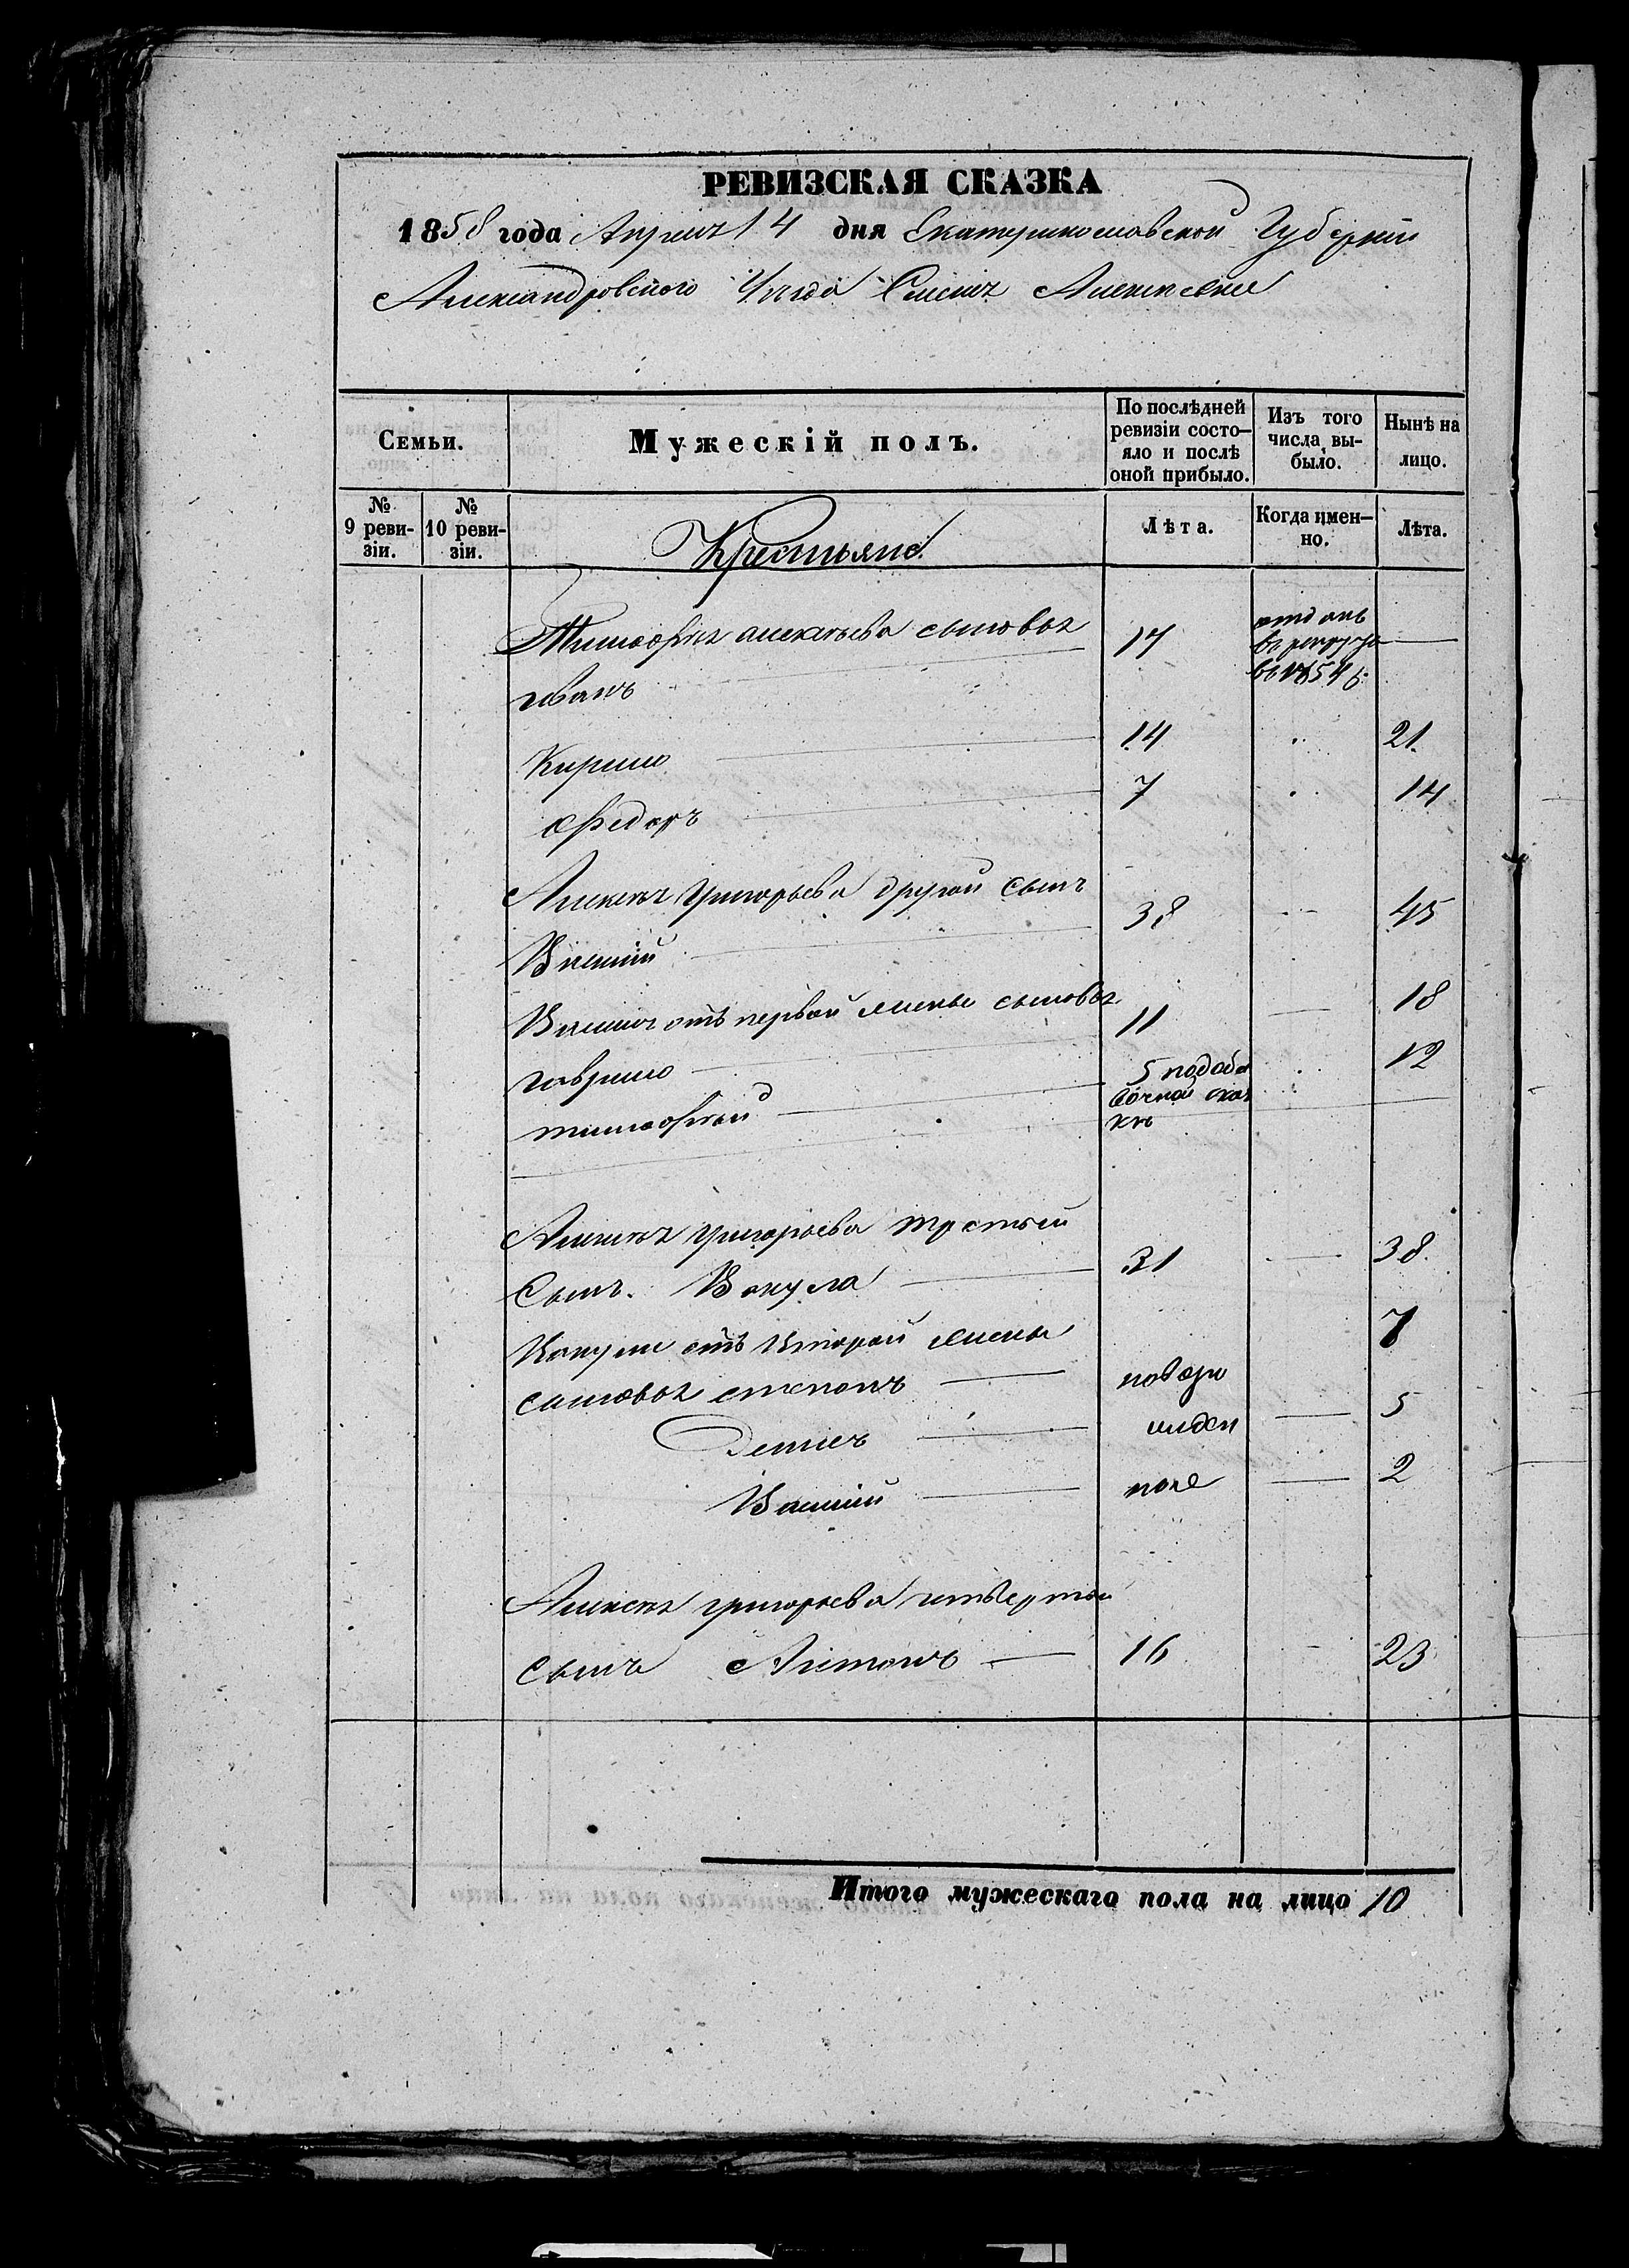 РЕВИЗСКАЯ СКАЗКА
1858 года Апреля 14 дня Екатеринославской Губернии
Александровского Уезда Алексеевки
Семьи.
Мужескій полъ.
По послѣдней ревизіи состо-
яло и послѣ
оной прибыло.
Изъ того
числа вы-
было.
Нынѣ на
лицо.
№
9 реви-
зіи.
№
10 реви-
зіи.
Крестьяне
Лѣта.
Когда имен-
но.
Лѣта.
Тимофея алексѣева сыновья
иванъ 17 отданъ в рекруты въ 1854 г.
Кирило 14 21.
Федоръ 7 14
Алексея Григорьева другой сынъ
Василий 38 45
Василия отъ первой жены сыновья
гаврило 11 18
тимофѣй 5 по доба вочной сказ кѣ 12
Алексея григорьева третий
Сынъ. Вакула 31 38.
Вакулы отъ второй жены
сыновья степанъ 7
Демись 5
Василий 2
Алексея григорьева четвертый
сынъ Антонъ 16 23
Итого мужескаго пола на лицо 10